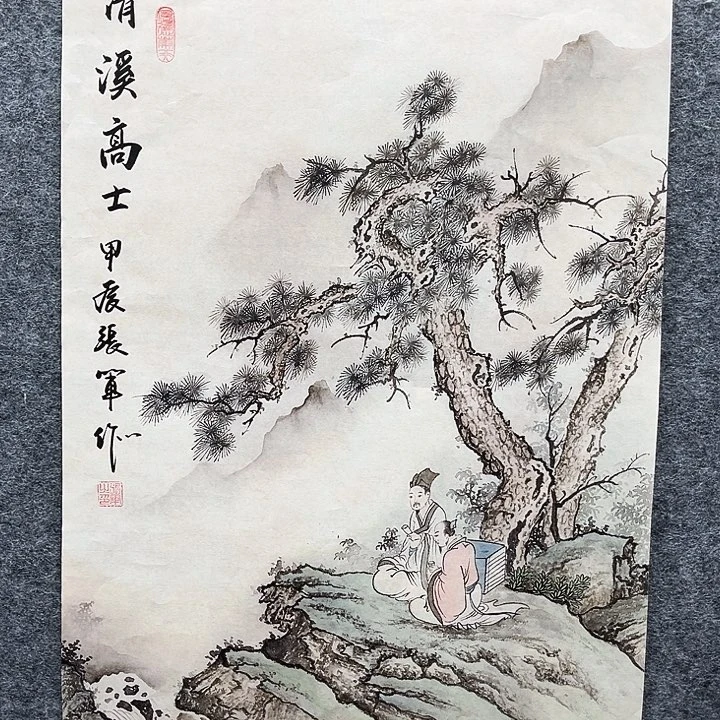 清溪高士甲辰張軍作